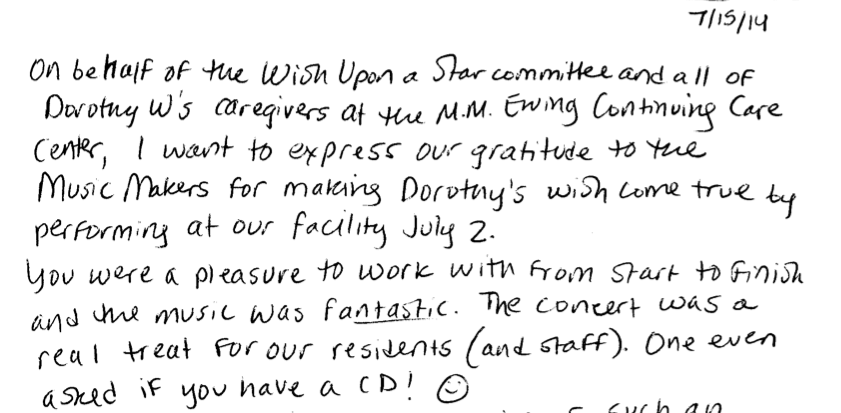 7/15/14
On behalf of the Wish Upon a Star committee and all of
Dorothy W's caregivers at the M.M. Ewing Continuing Care
Center, I want to express our gratitude to the
Music Makers for making Dorothy's wish come true by
performing at our facility July 2.
You were a pleasure to work with from start to finish
and the music was fantastic. The concert was a
real treat for our residents (and staff). One even
asked if you have a CD! ☺
such an